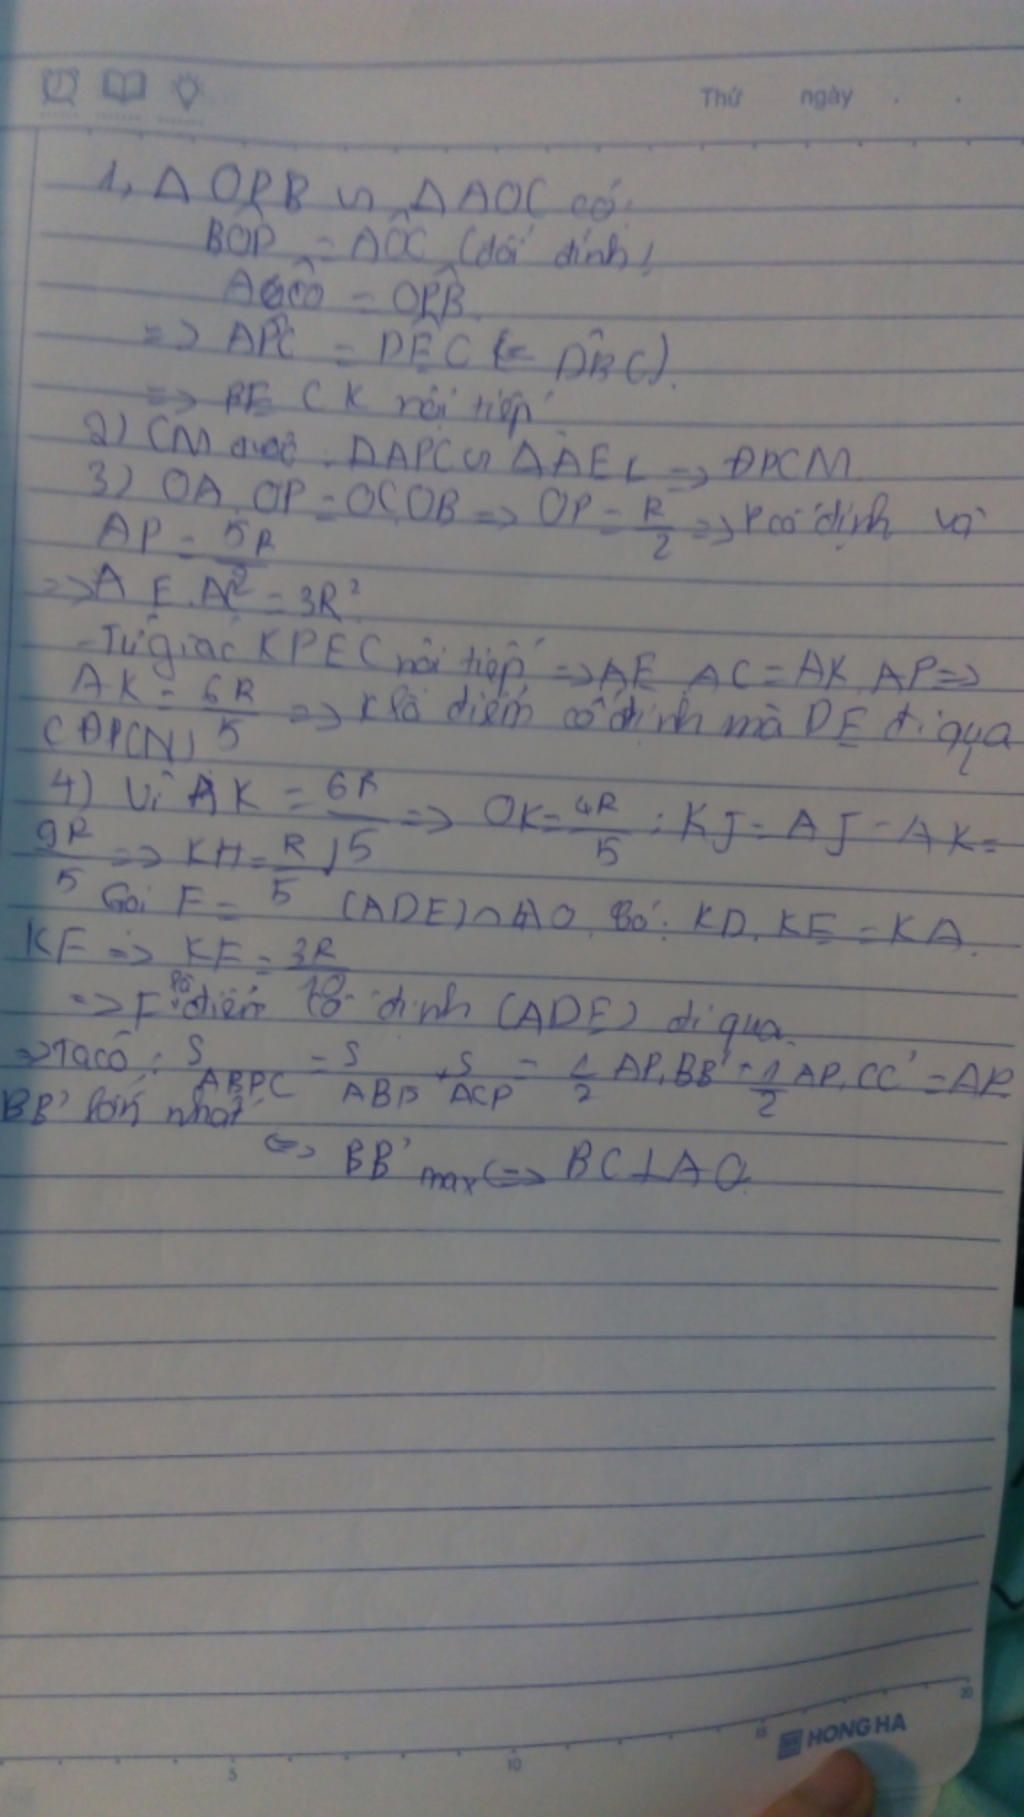 Thứ ngày
1, Δ OPB ∽ ΔAOC có:
BÔP = AÔC (đối đỉnh)
= OPB
=> APC = DEC (= DBC).
=> PE CK nội tiếp
2) CM được: ΔAPC ∽ ΔAEC => ĐPCM
3) OA.OP = OC.OB => OP = R/2 => P cố định và
AP = 5R/2
=> AE.AC = 3R²
- Tứ giác KPEC nội tiếp => AE.AC = AK.AP =>
AK = 6R/5 => K là điểm cố định mà DE đi qua
(ĐPCM)
4) Vì AK = 6R/5 => OK = 4R/5 ; KJ = AJ - AK =
9R/5 => KH = R/5
Gọi F = (ADE) ∩ AO. Có: KD.KE = KA.
KF => KF = 3R/10
=> F là điểm cố định (ADE) đi qua.
=> Ta có: S ABPC = S ABP + S ACP = 1/2 AP.BB' + 1/2 AP.CC' = AP.
BB' lớn nhất
<=> BB' max <=> BC⊥AO.
5
10
15
20
HONG HA